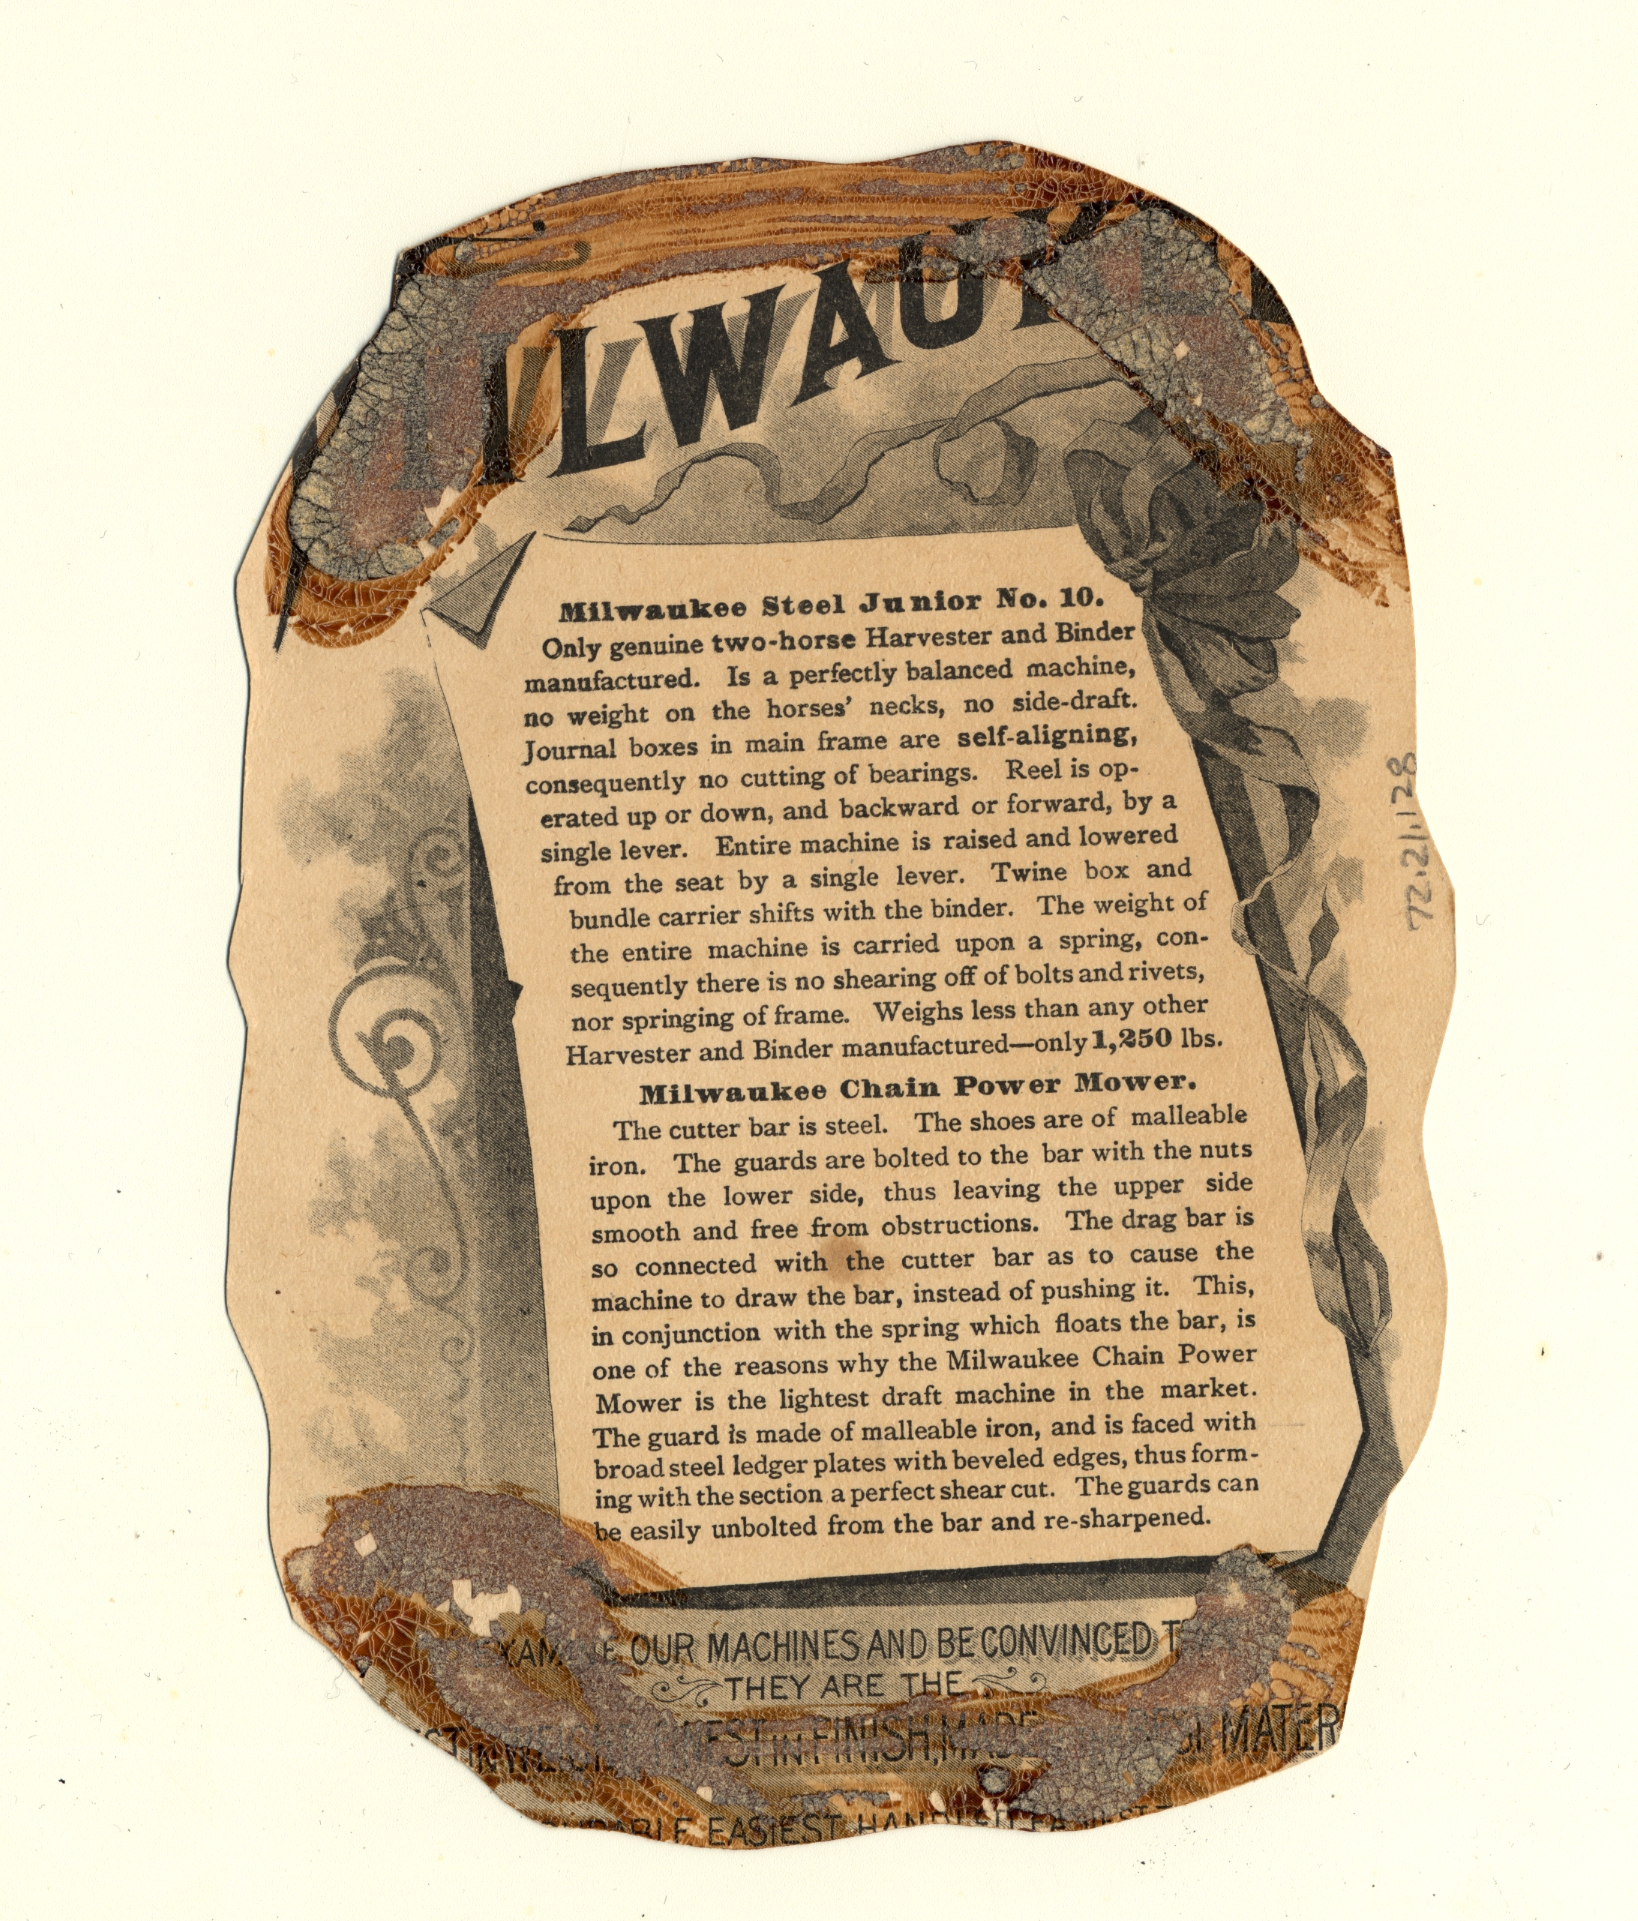 MILWAU
Milwaukee Steel Junior No. 10.
Only genuine two-horse Harvester and Binder
manufactured. Is a perfectly balanced machine,
no weight on the horses' necks, no side-draft.
Journal boxes in main frame are self-aligning,
consequently no cutting of bearings. Reel is op-
erated up or down, and backward or forward, by a
single lever. Entire machine is raised and lowered
from the seat by a single lever. Twine box and
bundle carrier shifts with the binder. The weight of
the entire machine is carried upon a spring, con-
sequently there is no shearing off of bolts and rivets,
nor springing of frame. Weighs less than any other
Harvester and Binder manufactured—only 1,250 lbs.
Milwaukee Chain Power Mower.
The cutter bar is steel. The shoes are of malleable
iron. The guards are bolted to the bar with the nuts
upon the lower side, thus leaving the upper side
smooth and free from obstructions. The drag bar is
so connected with the cutter bar as to cause the
machine to draw the bar, instead of pushing it. This,
in conjunction with the spring which floats the bar, is
one of the reasons why the Milwaukee Chain Power
Mower is the lightest draft machine in the market.
The guard is made of malleable iron, and is faced with
broad steel ledger plates with beveled edges, thus form-
ing with the section a perfect shear cut. The guards can
be easily unbolted from the bar and re-sharpened.
OUR MACHINES AND BE CONVINCED T
THEY ARE THE
IN FINISH, MADE BEST MATER
EASIEST HANDLED
72.21.128